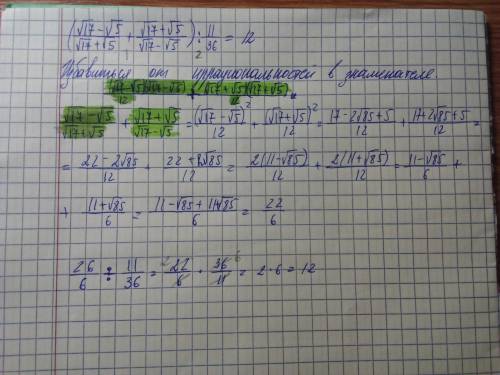 (√17-√5/√17+√5 + √17+√5/√17-√5) : 11/36 = 12
Избавиться от иррациональностей в знаменателе.
(√17-√5)(√17-√5)/12 + (√17+√5)(√17+√5)/12
√17-√5/√17+√5 + √17+√5/√17-√5 = (√17-√5)²/12 + (√17+√5)²/12 = 17-2√85+5/12 + 17+2√85+5/12 =
= 22-2√85/12 + 22+2√85/12 = 2(11-√85)/12 + 2(11+√85)/12 = 11-√85/6 +
+ 11+√85/6 = 11-√85+11√85/6 = 22/6
26/6 ÷ 11/36 = 22/6 · 36/11 = 2·6 = 12